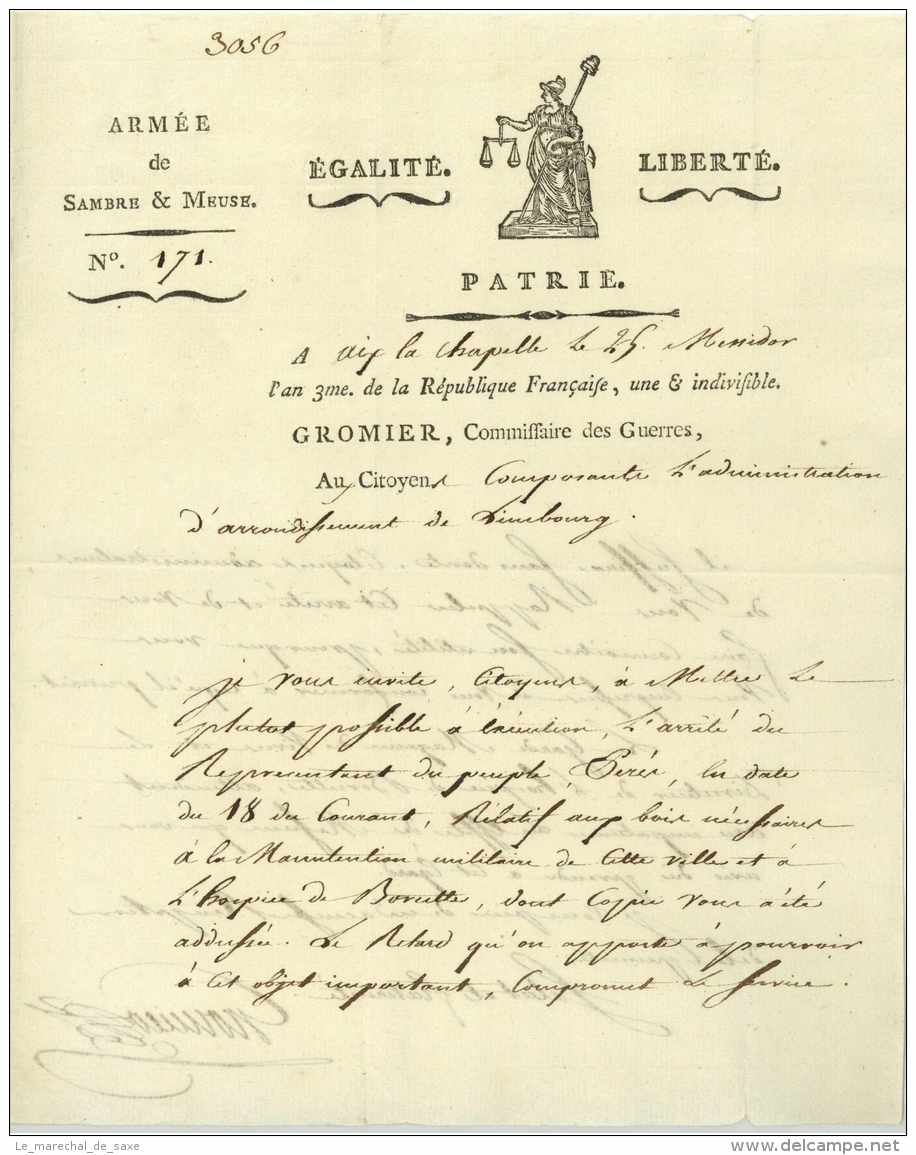 3056
ARMÉE
de
SAMBRE & MEUSE.
Nº. 171.
ÉGALITÉ. LIBERTÉ.
PATRIE.
A aix la chapelle Le 25. Messidor
l'an 3me. de la République Françaiſe, une & indiviſible.
GROMIER, Commiſſaire des Guerres,
Aux Citoyens Composants L'administration
d'arrondissement de Limbourg.
je vous invite, Citoyens, à Mettre Le
plutot possible à éxécution, L'arrêté du
Représentant du peuple, Perés, En date
du 18 du Courant, Rélatif aux bois nécessaires
à la Manutention militaire de Cette ville et à
L'hospice de Borcette, dont Copie vous a été
addressée. Le Retard qu'on apporte à pourvoir
à Cet objet important, Compromet Le Service.
Gromier
Le_marechal_de_saxe
www.delcampe.net